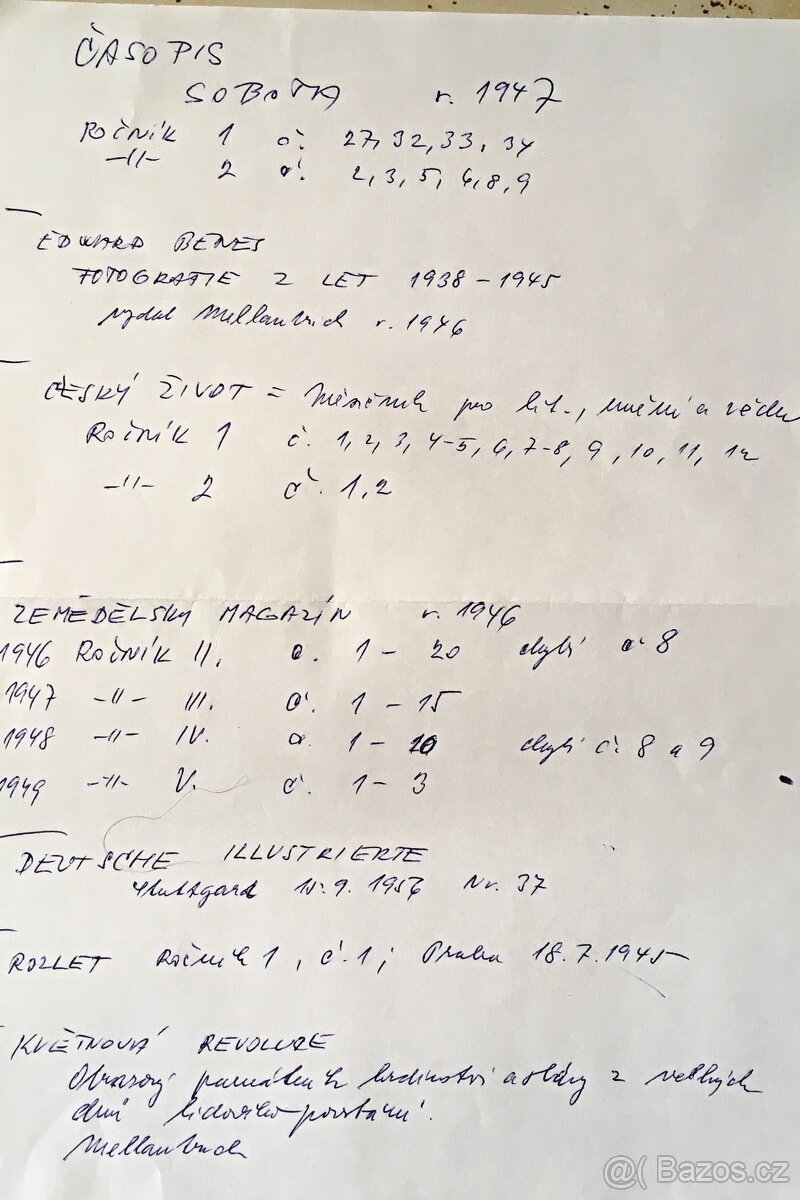 ČASOPIS
SOBOTA r. 1947
Ročník 1 č. 27, 32, 33, 34
-"- 2 č. 2, 3, 5, 6, 8, 9
EDWARD BENEŠ
FOTOGRAFIE Z LET 1938 - 1945
vydal Mellantrich r. 1946
ČESKÝ ŽIVOT = Měsíčník pro lit., umění a vědu
Ročník 1 č. 1, 2, 3, 4-5, 6, 7-8, 9, 10, 11, 12
-"- 2 č. 1, 2
ZEMĚDĚLSKÝ MAGAZÍN r. 1946
1946 Ročník II. č. 1 - 20 chybí č 8
1947 -"- III. č. 1 - 15
1948 -"- IV. č. 1 - 10 chybí č. 8 a 9
1949 -"- V. č. 1 - 3
DEUTSCHE ILLUSTRIERTE
Stuttgard 15. 9. 1956 Nr. 37
ROZLET Ročník 1, č. 1; Praha 18. 7. 1945
KVĚTNOVÁ REVOLUCE
Obrazový památník hrdinství a slávy z velkých
dnů lidového povstání.
Mellantrich
@( Bazos.cz